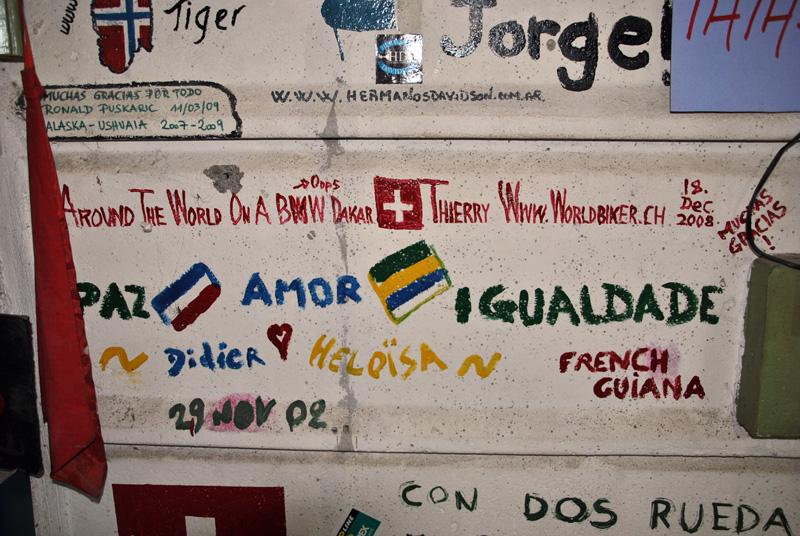 www
Tiger
Jorge
MUCHAS GRACIAS POR TODO
RONALD PUSKARIC 11/03/09
ALASKA - USHUAIA 2007-2009
WWW.HERMANOSDAVIDSON.COM.AR
Oops
AROUND THE WORLD ON A BMW DAKAR THIERRY WWW.WORLDBIKER.CH 18. Dec 2008
MUCHAS GRACIAS!
PAZ AMOR IGUALDADE
~ Didier HELOÏSA ~
FRENCH GUIANA
29 NOV 02.
CON DOS RUEDA